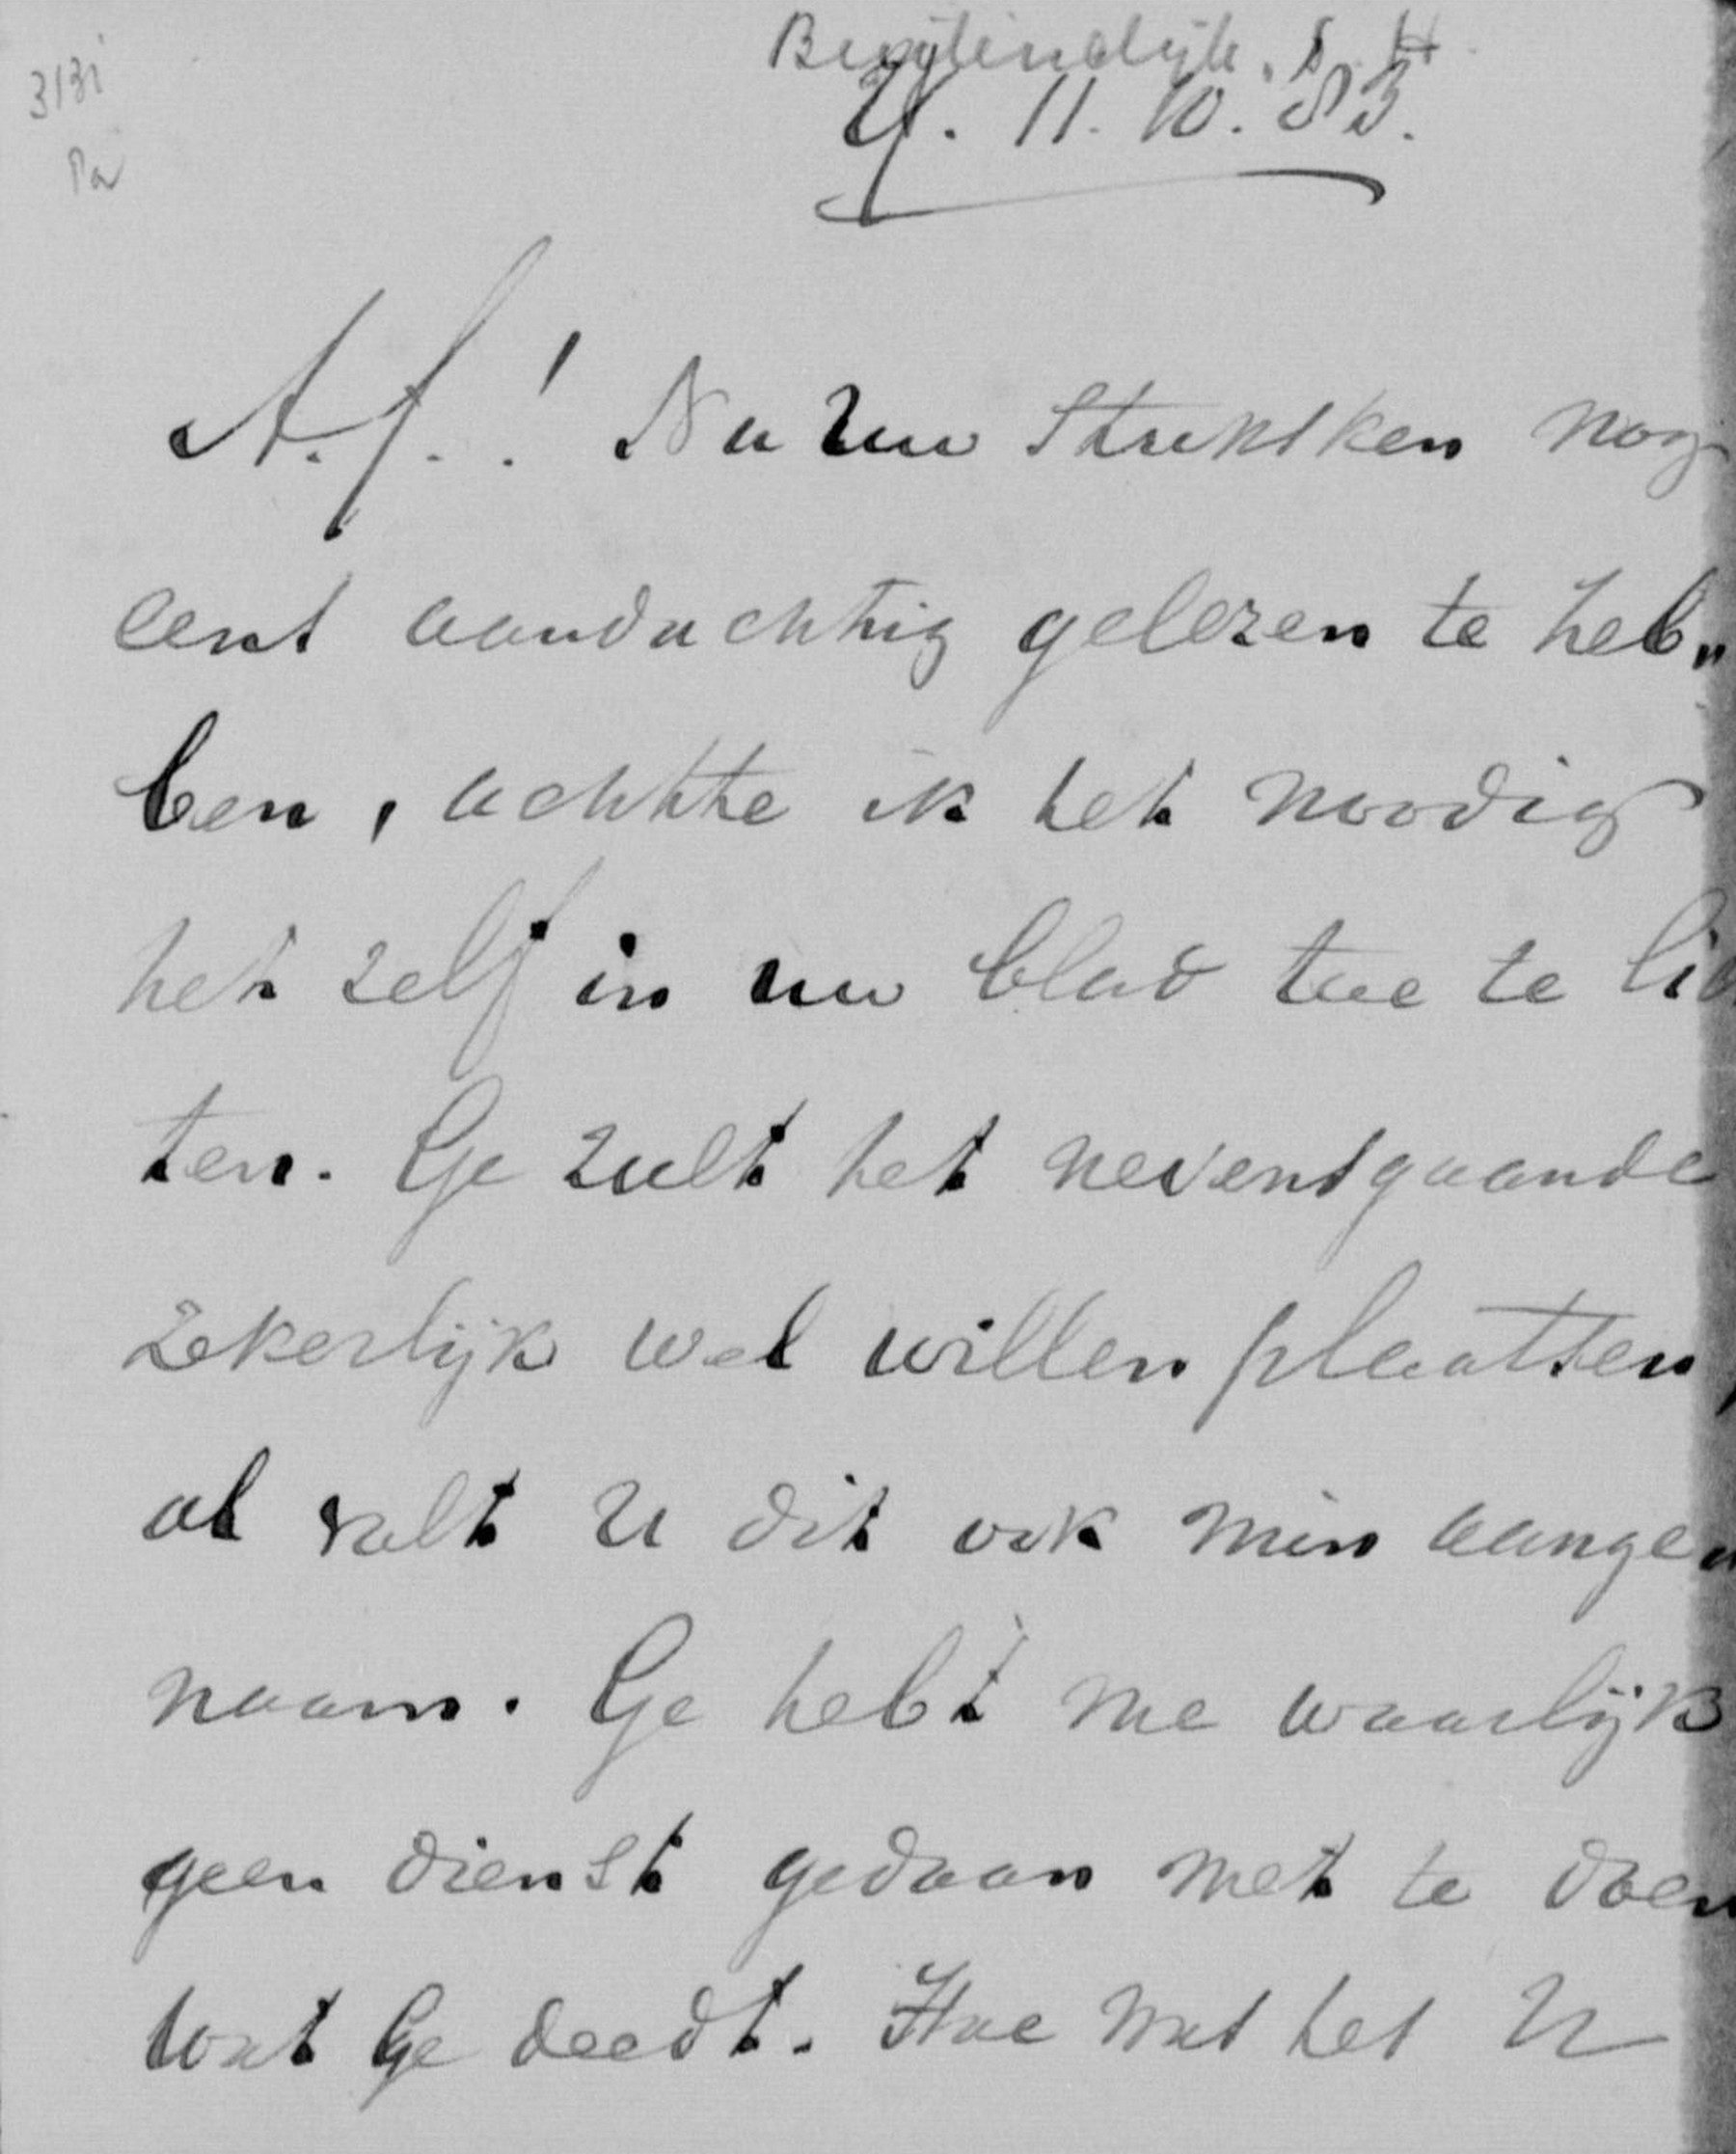 A. f.! Na Uw stukske nog
eens aandachtig gelezen te heb„
ben, achtte ik het noodig
het zelf in uw blad toe te lich
ten. Ge zult het nevensgaande
zekerlijk wel willen plaatsen,
al valt U dit ook min aange„
naam. Ge hebt me waarlijk
geen dienst gedaan met te doen
wat Ge deedt. Hoe was het U
11.10.83.